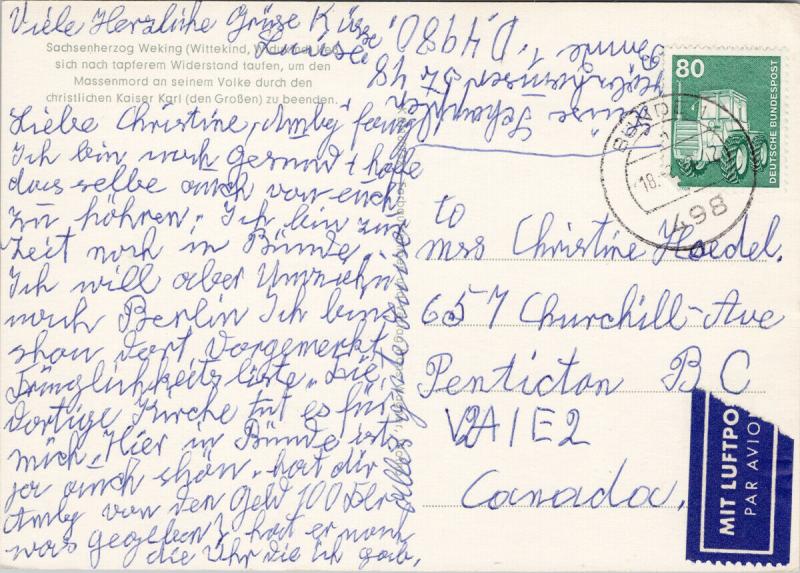 Viele Herzliche Grüße Küsse
Louise
Sachsenherzog Weking (Wittekind, Widukind) ließ
sich nach tapferem Widerstand taufen, um den
Massenmord an seinem Volke durch den
christlichen Kaiser Karl (den Großen) zu beenden.
Liebe Christine, Amby
Ich bin noch gesund + hoffe
dasselbe auch von euch
zu höhren, Ich bin zur
Zeit noch in Bünde.
Ich will aber Umziehn
nach Berlin Ich bin
schon dort Vorgemerkt
Dringlichkeitsliste, Die
dortige Kirche tut es für
mich. Hier in Bünde ists
ja auch schön. hat dir
Amby von den Geld 100 Dlr
was gegeben? hat er noch
die Uhr die ich gab,
alles gute
48
Bünde 1, D, 4980
80
DEUTSCHE BUNDESPOST
BÜNDE 1
18.
498
to
mss Christine Hoedel.
657 Churchill-Ave
Penticton B C
V2A1E2
Canada.
MIT LUFTPO
PAR AVION